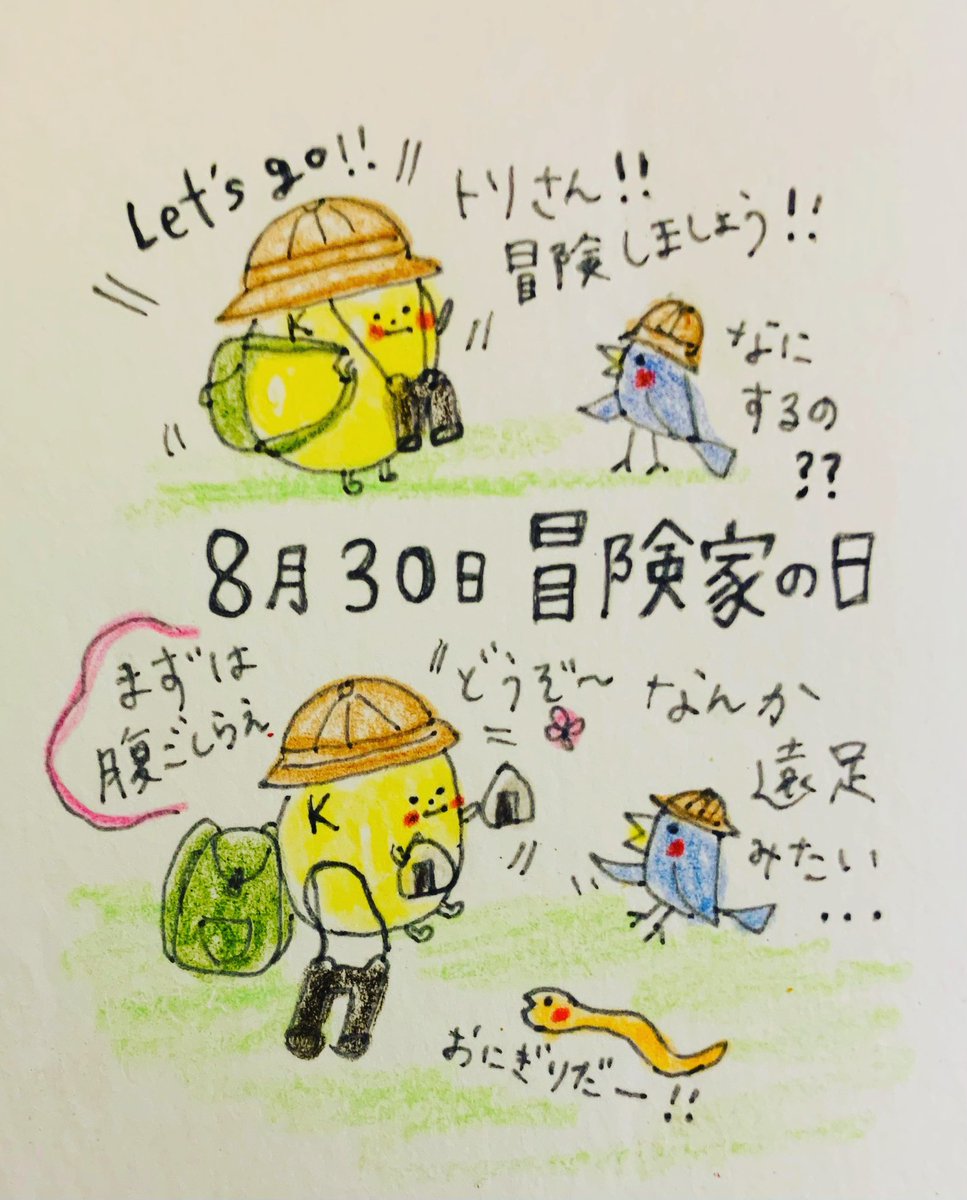 Let's go!!
トリさん!!
冒険しましょう!!
K
なに
するの
??
8月30日 冒険家の日
まずは
腹ごしらえ
どうぞ〜
なんか
遠足
みたい
...
K
おにぎりだー!!